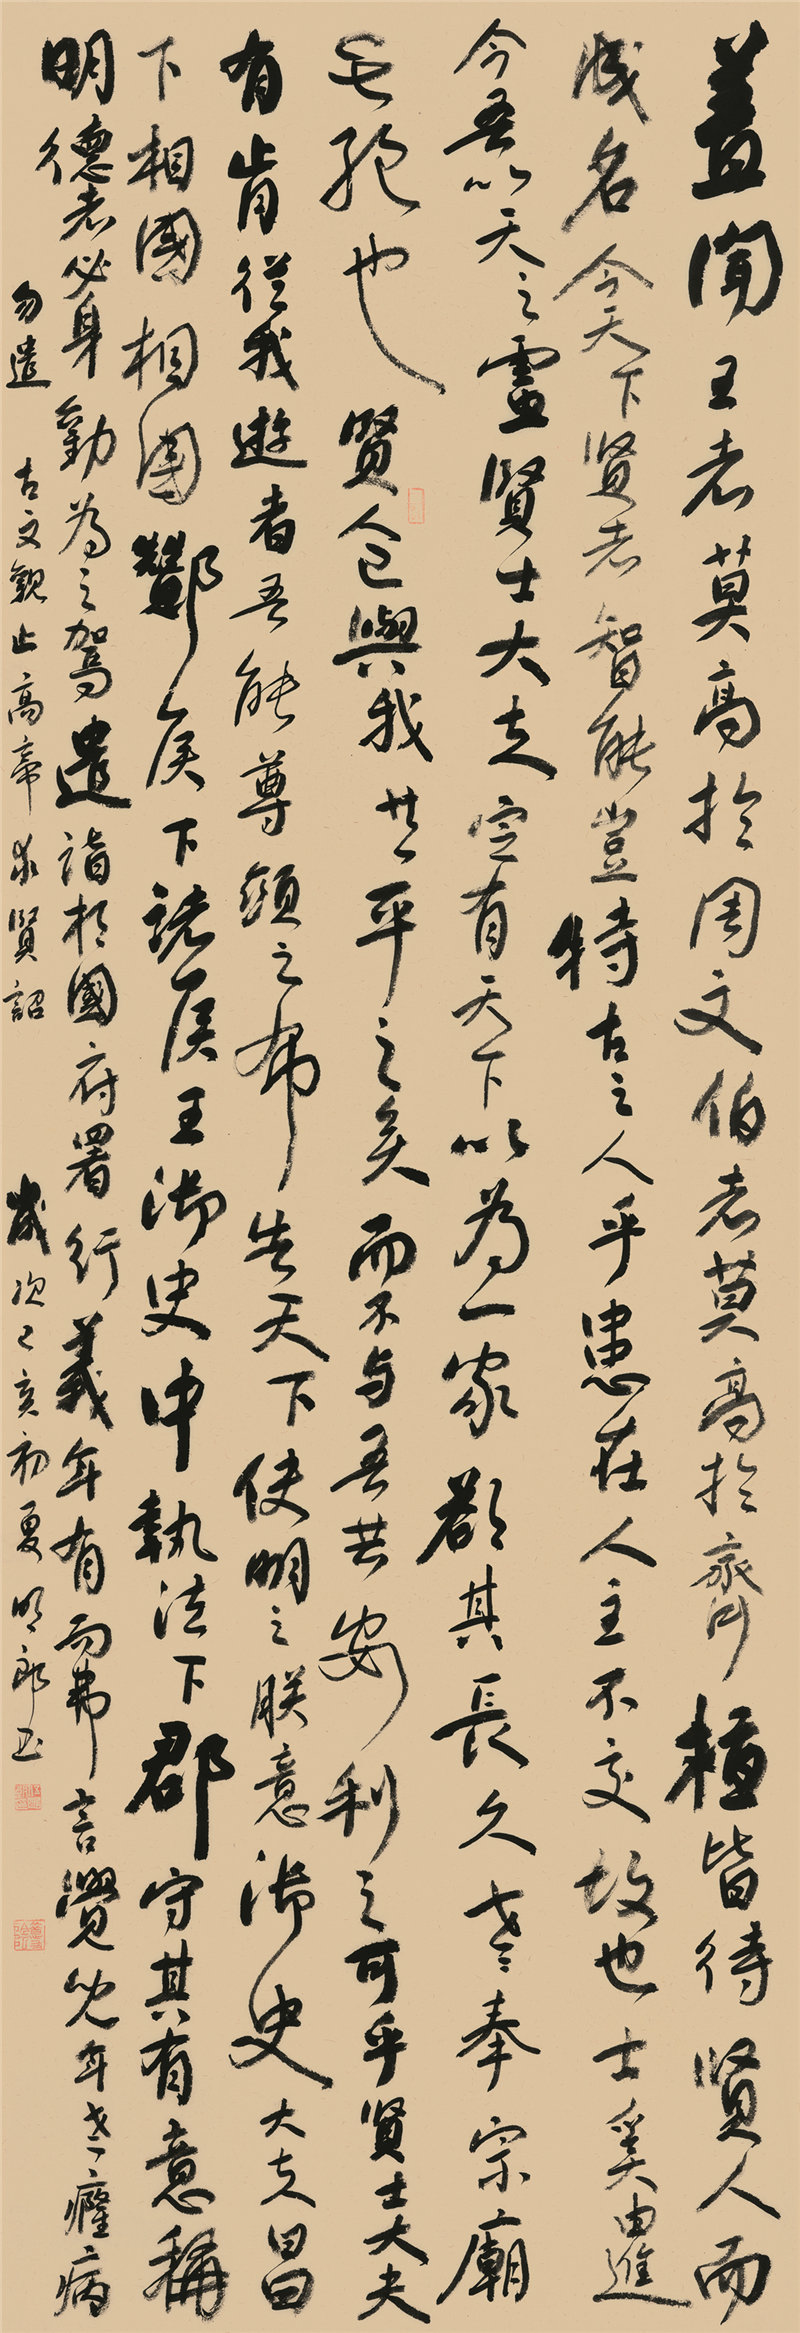 蓋聞王者莫高於周文伯者莫高於齊桓皆待賢人而
成名今天下賢者智能豈特古之人乎患在人主不交故也士奚由進
今吾以天之靈賢士大夫定有天下以為一家欲其長久世世奉宗廟
亡絕也賢人已與我共平之矣而不与吾共安利之可乎賢士大夫
有肯從我遊者吾能尊顯之布告天下使明之朕意御史大夫昌
下相國相國酇侯下諸侯王御史中執法下郡守其有意稱
明德者必身勸為之駕遣詣相國府署行義年有而弗言覺免年老癃病
勿遣 古文觀止高帝求賢詔 歲次己亥初夏明郎书